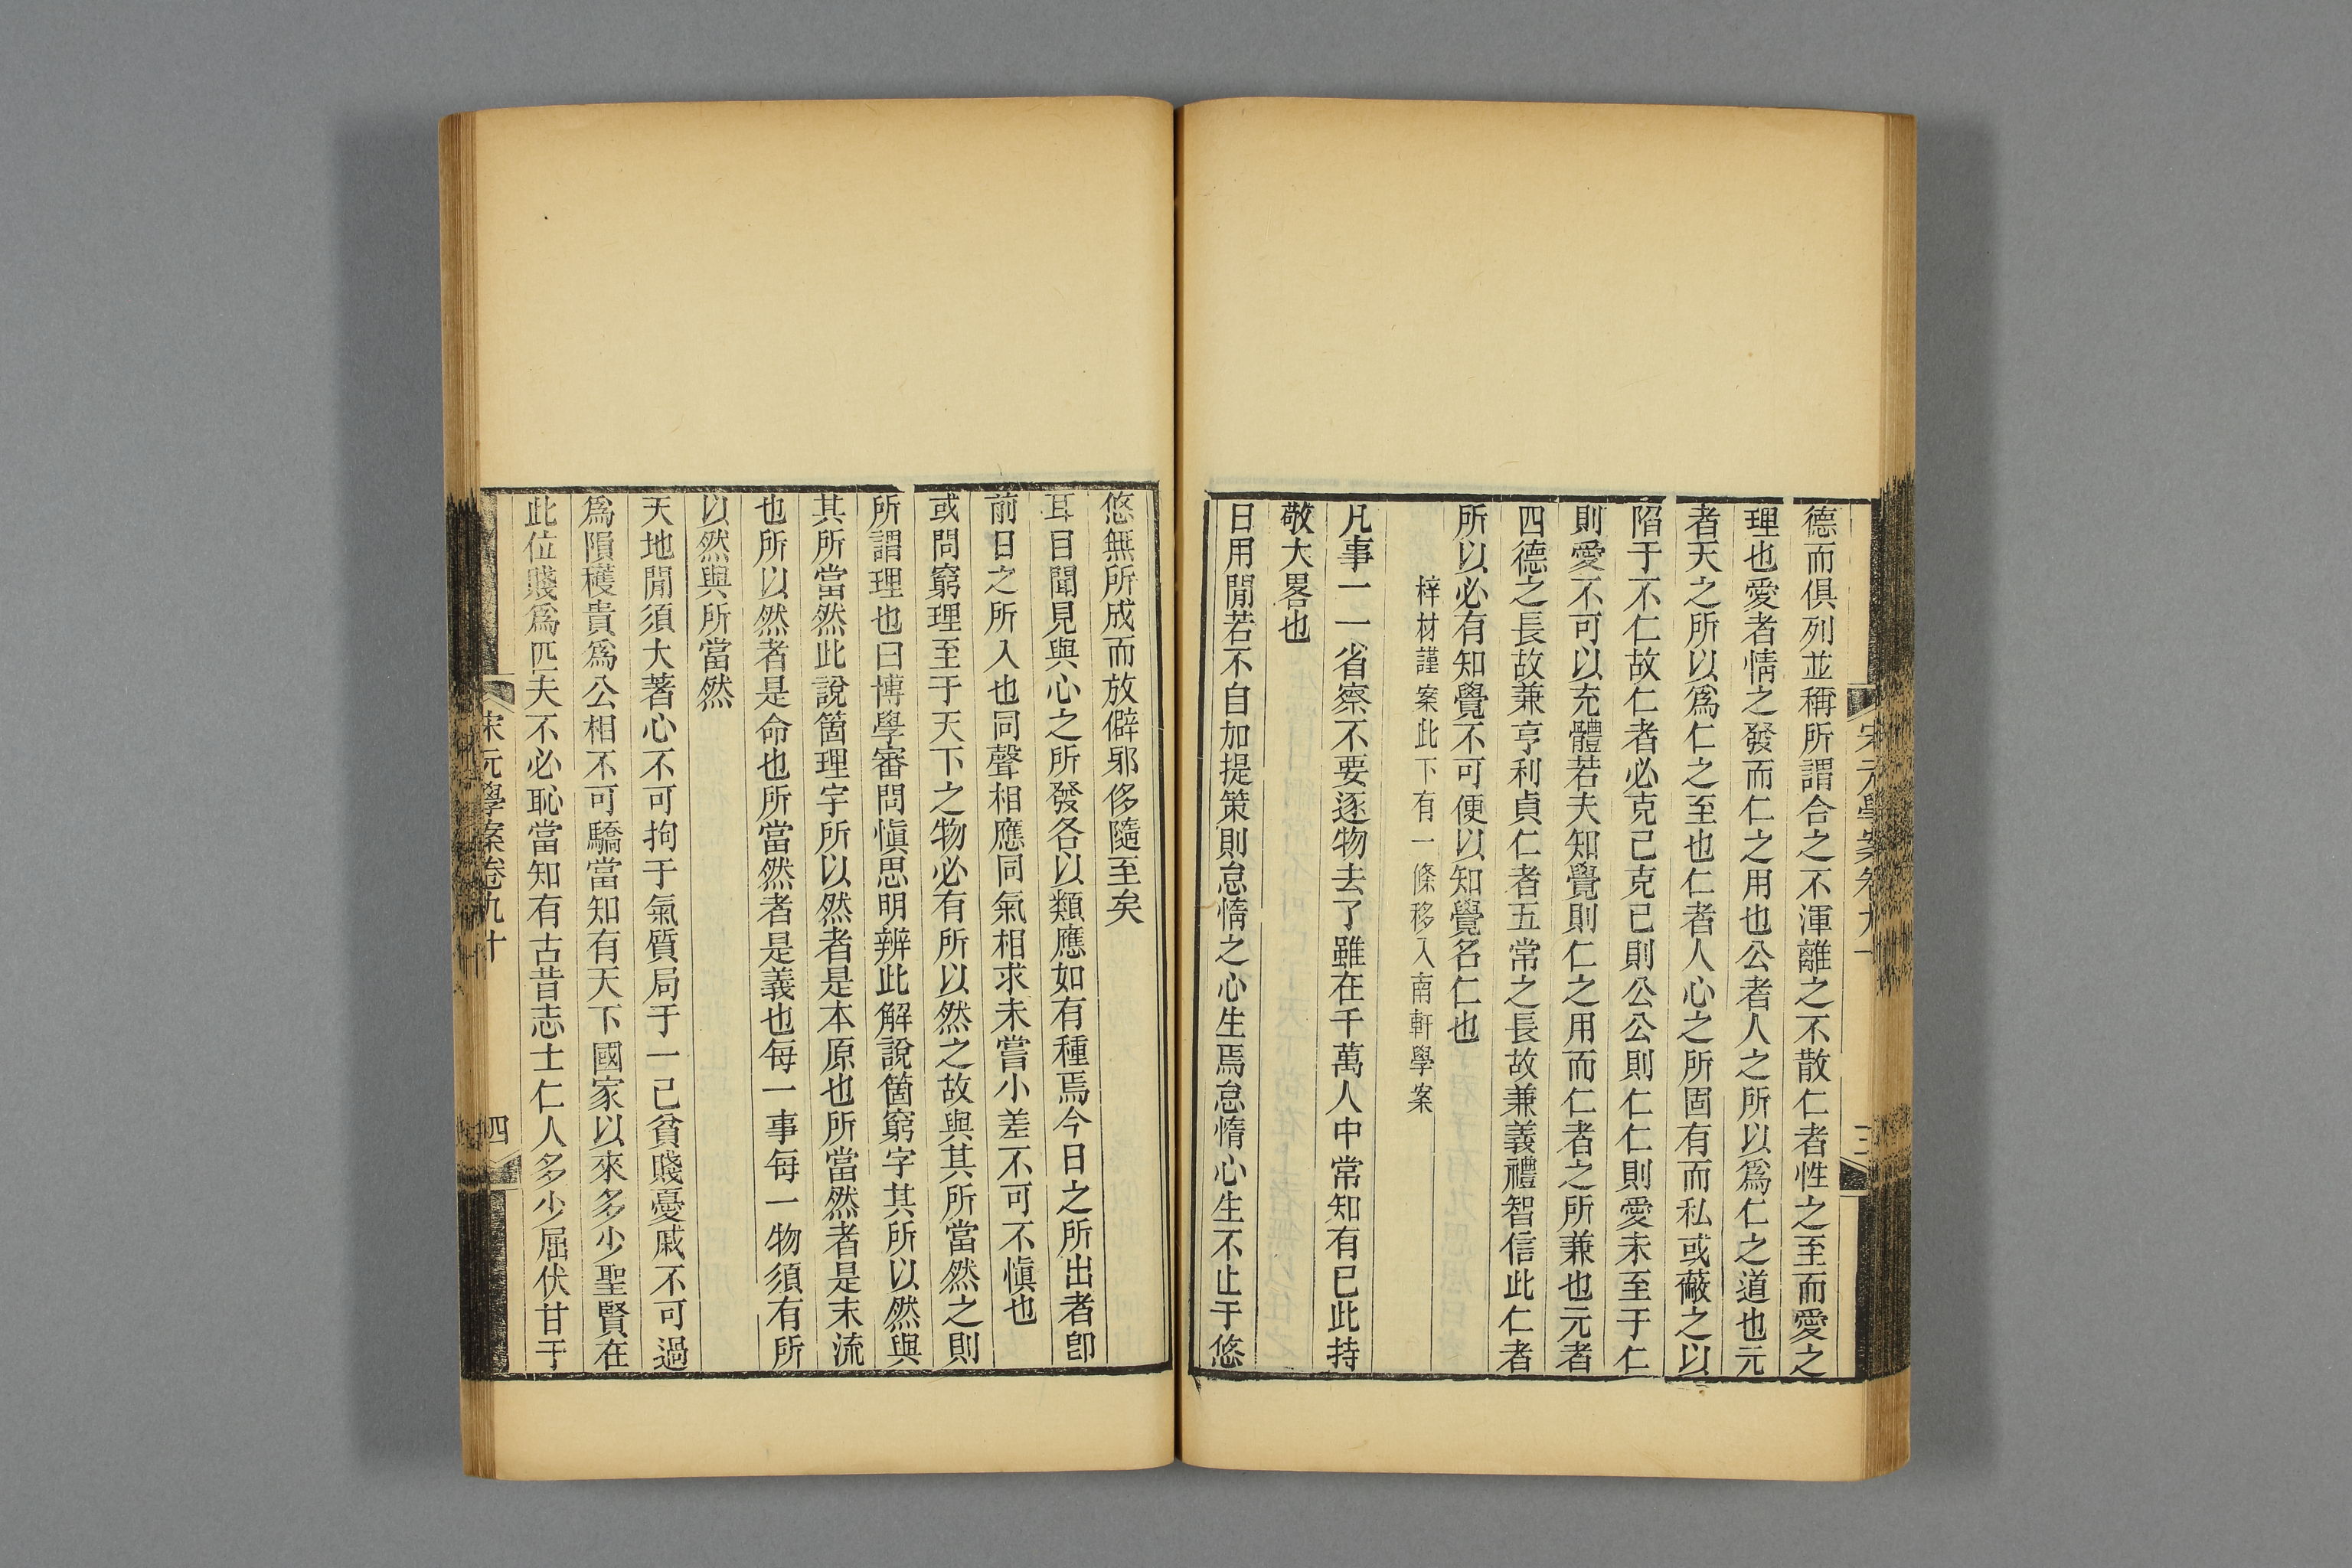 德而俱列並稱所謂合之不渾離之不散仁者性之至而愛之
理也愛者情之發而仁之用也公者人之所以爲仁之道也元
者天之所以爲仁之至也仁者人心之所固有而私或蔽之以
陷于不仁故仁者必克己克已則公公則仁仁則愛未至于仁
則愛不可以充體若夫知覺則仁之用而仁者之所兼也元者
四德之長故兼亨利貞仁者五常之長故兼義禮智信此仁者
所以必有知覺不可便以知覺名仁也
梓材謹案此下有一條移入南軒學案
凡事一一省察不要逐物去了雖在千萬人中常知有已此持
敬大畧也
日用閒若不自加提策則怠惰之心生焉怠惰心生不止于悠
悠無所成而放僻邪侈隨至矣
耳目聞見與心之所發各以類應如有種焉今日之所出者卽
前日之所入也同聲相應同氣相求未嘗小差不可不愼也
或問窮理至于天下之物必有所以然之故與其所當然之則
所謂理也曰博學審問愼思明辨此解說箇窮字其所以然與
其所當然此說箇理字所以然者是本原也所當然者是末流
也所以然者是命也所當然者是義也每一事每一物須有所
以然與所當然
天地閒須大著心不可拘于氣質局于一己貧賤憂戚不可過
爲隕穫貴爲公相不可驕當知有天下國家以來多少聖賢在
此位賤爲匹夫不必恥當知有古昔志士仁人多少屈伏甘于
宋元學案卷九十
四